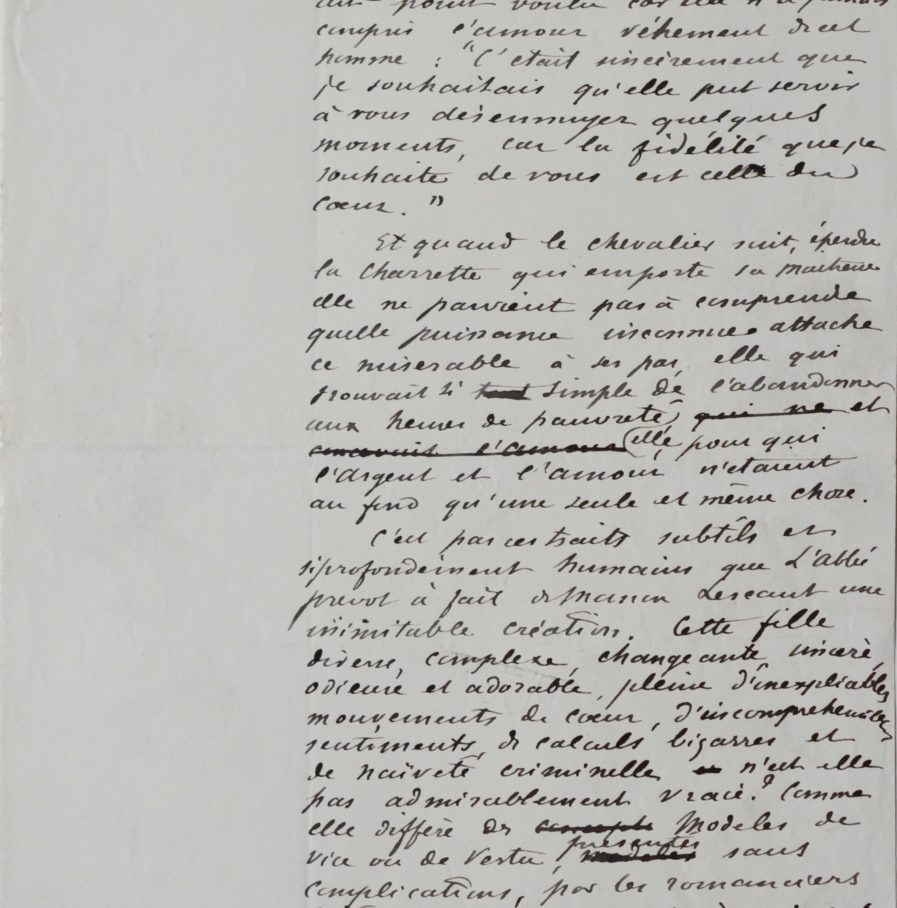 point voulu car elle n'a jamais
compris l'amour véhément de cet
homme : "C'était sincèrement que
je souhaitais qu'elle put servir
à vous désennuyer quelques
moments, car la fidélité que je
souhaite de vous est celle du
cœur."
Et quand le chevalier suit, éperdu
la charrette qui emporte sa maitresse
elle ne parvient pas à comprendre
quelle puissance inconnue attache
ce miserable à ses pas, elle qui
trouvait si tout simple de l'abandonner
aux heures de pauvreté, qui ne et
concevait l'amour elle pour qui
l'argent et l'amour n'étaient
au fond qu'une seule et même chose.
C'est par ces traits subtils et
si profondement humains que L'abbé
prevot à fait de Manon Lescaut une
inimitable création. Cette fille
diverse, complexe, changeante, sincère,
odieuse et adorable, pleine d'inexpliables
mouvements de cœur, d'incomprehensibles
sentiments, de calculs bizarres et
de naïveté criminelle n'est elle
pas admirablement vraie? Comme
elle diffère des Modeles de
vice ou de vertu, présentés modeles sans
complications, par les romanciers